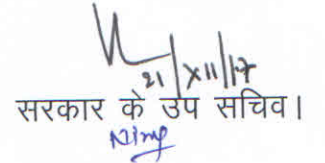 21/XII/17
सरकार के उप सचिव।